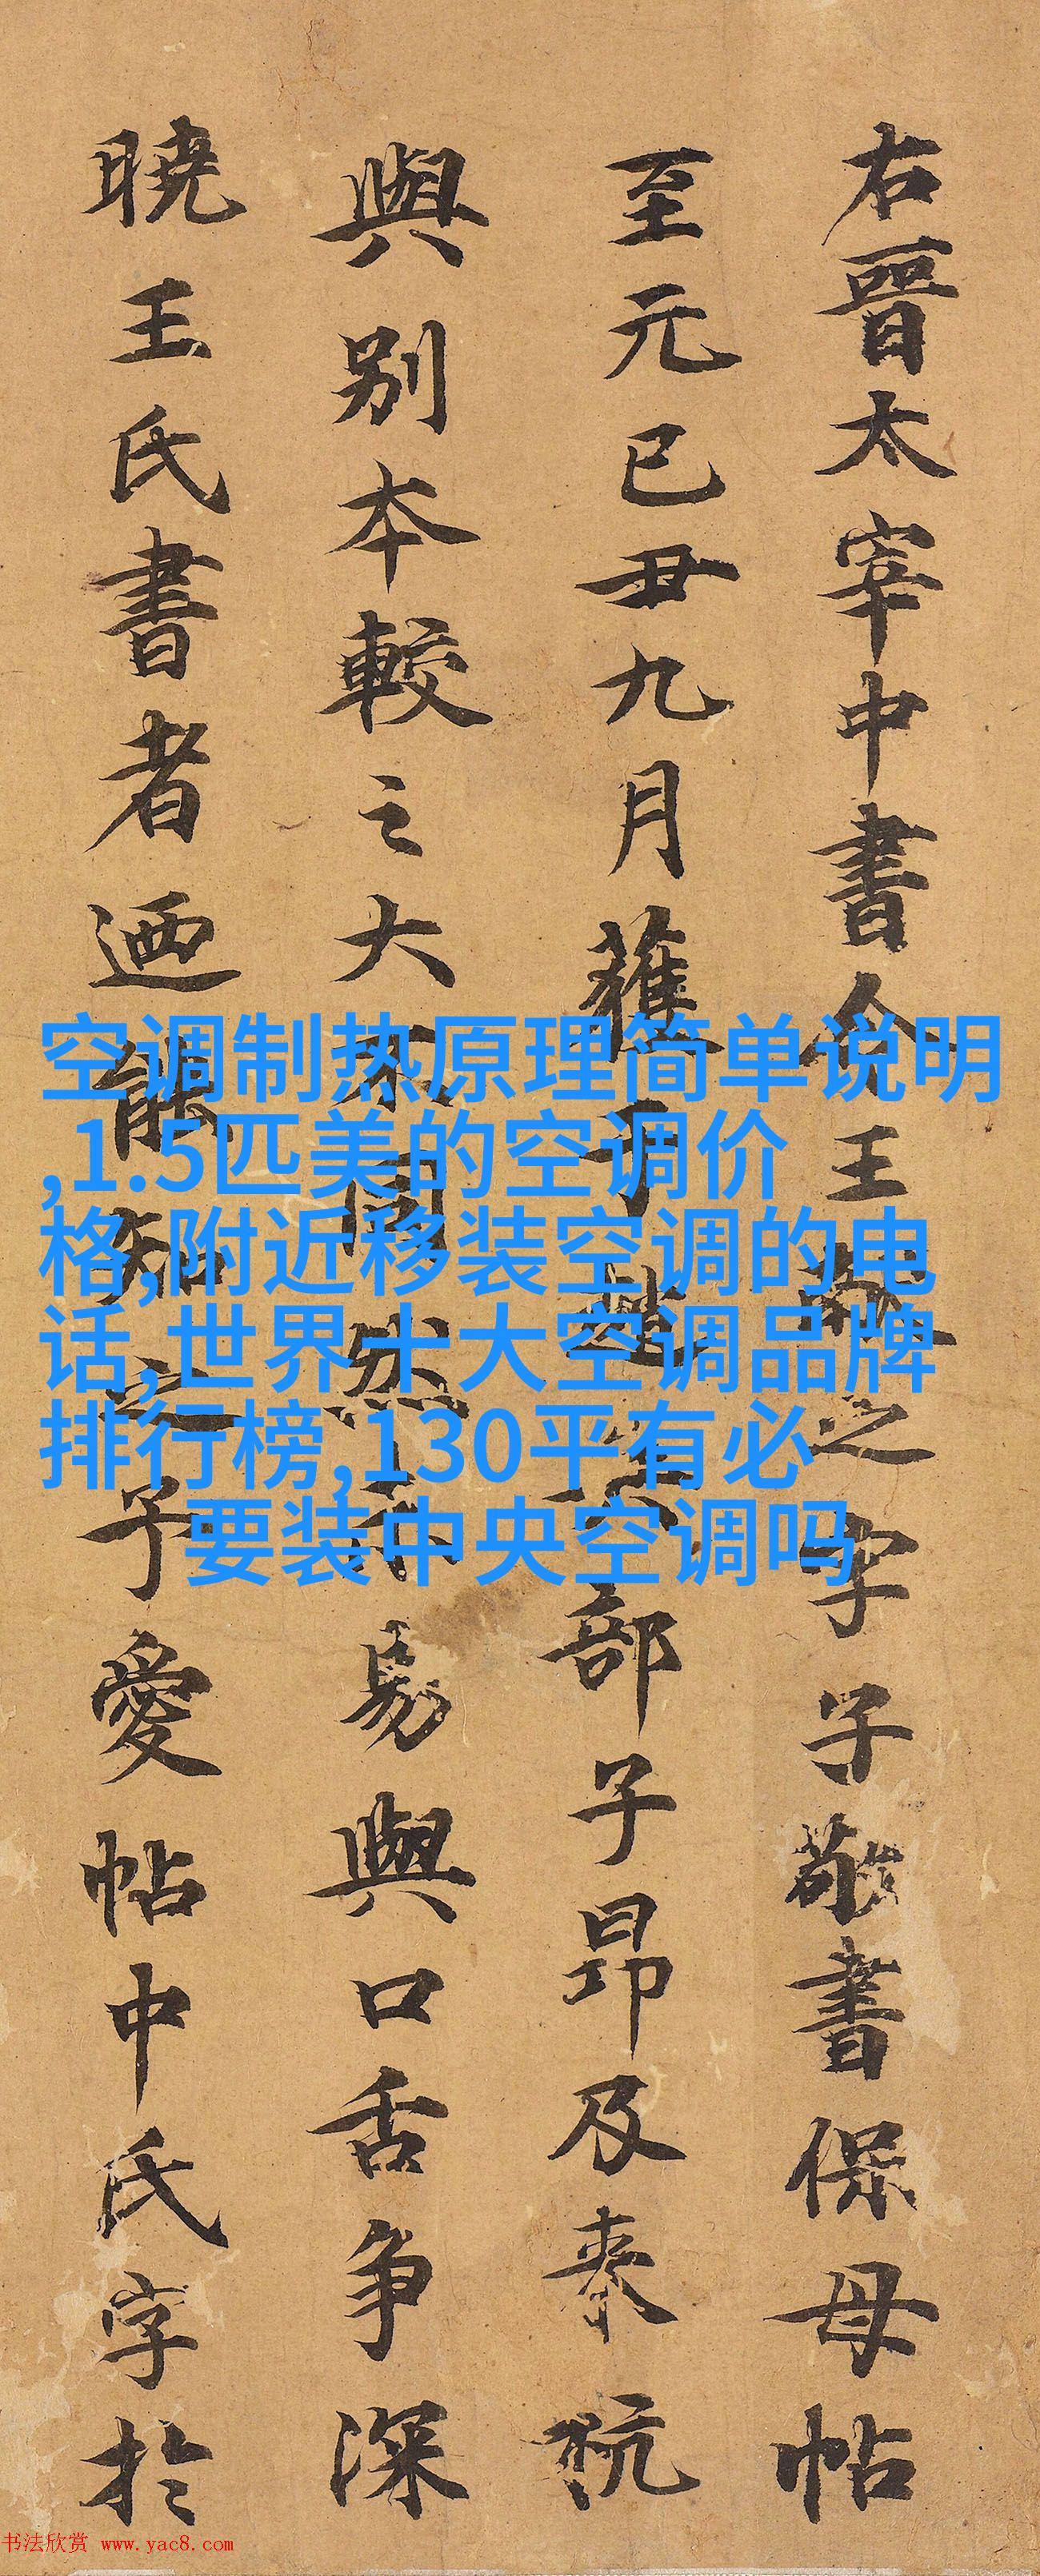 右晉太宰中書令王獻之字子敬書保母帖
至元已丑九月獲于趙部子昂及杭
與別本較之大不同然不易與口舌争深
曉王氏書者迺能知之予愛帖中氏字於
空调制热原理简单说明
,1.5匹美的空调价
格,附近移装空调的电
话,世界十大空调品牌
排行榜,130平有必
要装中央空调吗
书法欣赏 www.yac8.com